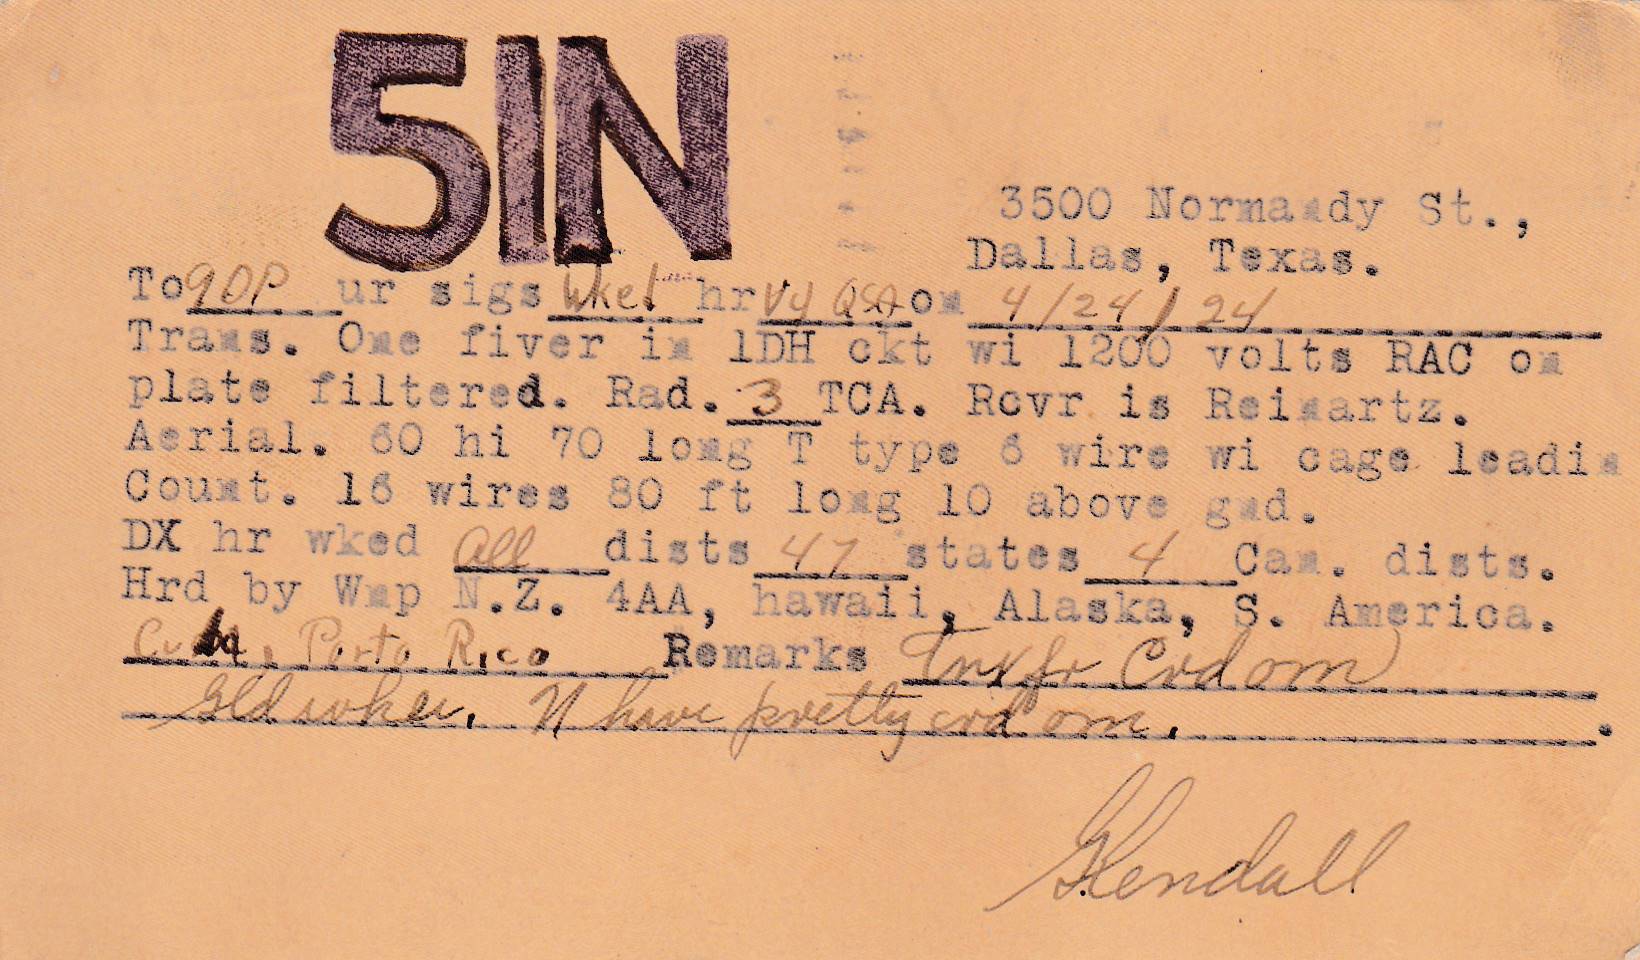 5IN
3500 Normandy St.,
Dallas, Texas.
To 9DP ur sigs Wked hr Vy QSA on 4/24/24
Trans. One fiver in 1DH ckt wi 1200 volts RAC on
plate filtered. Rad. 3 TCA. Rcvr is Reinartz.
Aerial. 60 hi 70 long T type 6 wire wi cage leadin
Count. 16 wires 80 ft long 10 above gnd.
DX hr wked All dists 47 states 4 Can. dists.
Hrd by Wnp N.Z. 4AA, hawaii, Alaska, S. America.
Cuba, Porto Rico Remarks Tnx fr Crd om
Gld wrk u. U have pretty crd om.
Glendall